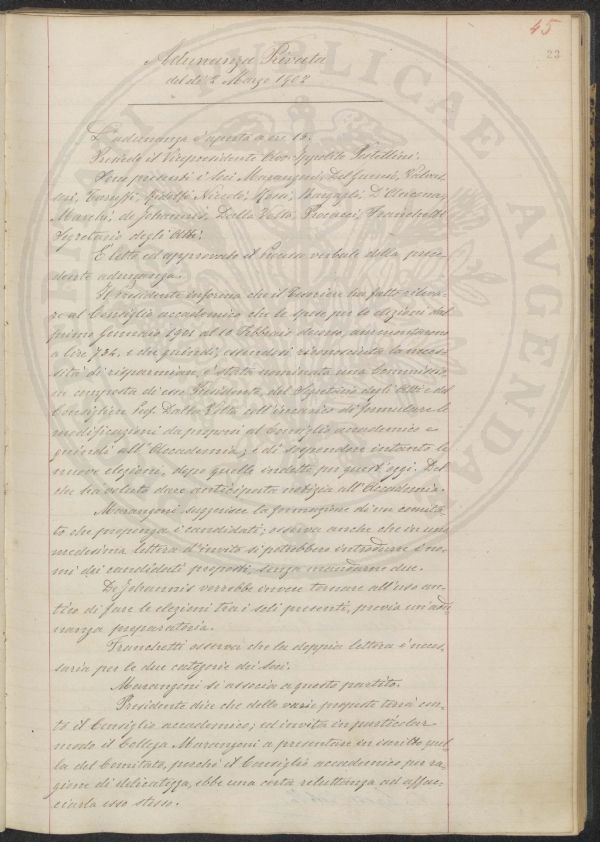 45
23
Adunanza Privata
del dì 2 Marzo 1902
L'adunanza è aperta a ore 15.
Presiede il Vicepresidente Cav. Ippolito Pestellini.
Sono presenti i Soci Marangoni, Del Guerra,
Niccolò, Bargagli, D'Ancona,
de Johannis, Dalla Volta, Franchetti
Segretario degli Atti.
È letto ed approvato il Processo verbale della prece-
dente adunanza.
Il Presidente informa che il Tesoriere ha fatto rileva-
re al Consiglio accademico che le spese per le elezioni dal
primo Gennaio 1901 al 10 Febbraio decorso, aumentarono
a lire 734, e che quindi, essendosi riconosciuta la neces-
sità di risparmiare, è stata nominata una Commissio-
ne composta di esso Presidente, del Segretario degli Atti e del
Consigliere Prof. Dalla Volta coll'incarico di formulare le
modificazioni da proporsi al Consiglio accademico e
quindi all'Accademia; e di sospendere intanto le
nuove elezioni, dopo quelle indette per quest'oggi. Del
che ha voluto dare anticipata notizia all'Accademia.
Marangoni suggerisce la formazione di un comita-
to che proponga i candidati; osserva anche che in una
medesima lettera d'invito si potrebbero introdurre i no-
mi dei candidati proposti, senza mandarne due.
De Johannis vorrebbe invece tornare all'uso an-
tico di fare le elezioni tra i soli presenti, previa un'adu-
nanza preparatoria.
Franchetti osserva che la doppia lettera è neces-
saria per le due categorie dei Soci.
Marangoni si associa a questo partito.
Presidente dice che delle varie proposte terrà con-
to il Consiglio accademico; ed invita in particolar
modo il Collega Marangoni a presentare in iscritto quel-
la del Comitato, perché il Consiglio accademico per ra-
gione di delicatezza, ebbe una certa riluttanza ad affac-
ciarla esso stesso.